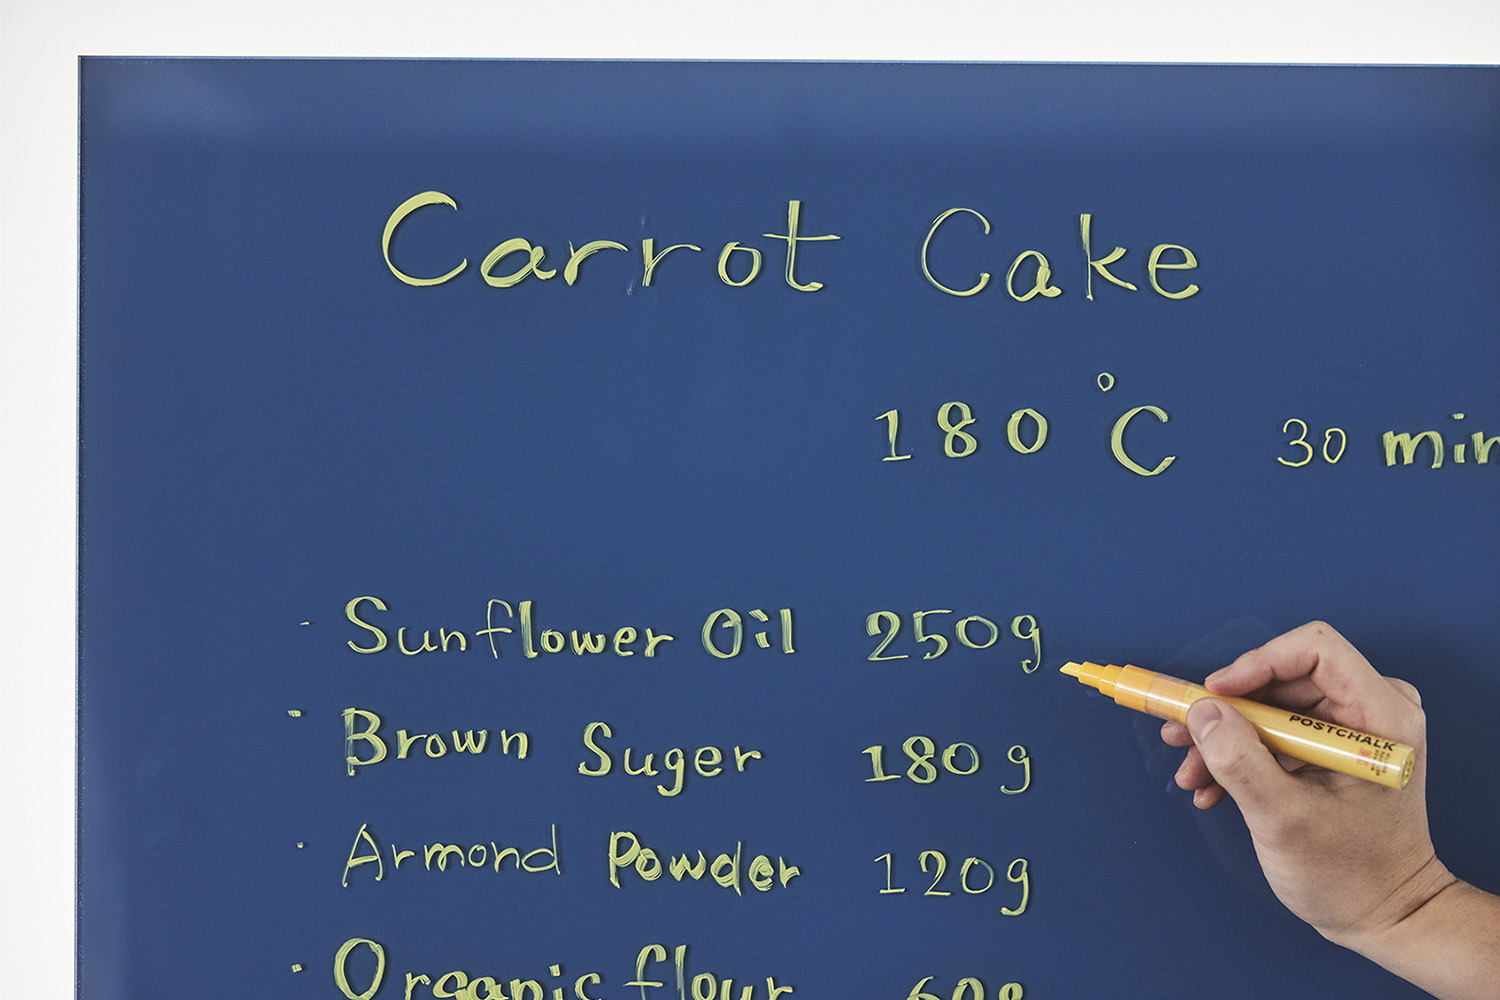 Carrot Cake
180 °C 30 min
· Sunflower Oil 250g
· Brown Suger 180g
· Armond Powder 120g
· Organic flour 60g
POSTCHALK